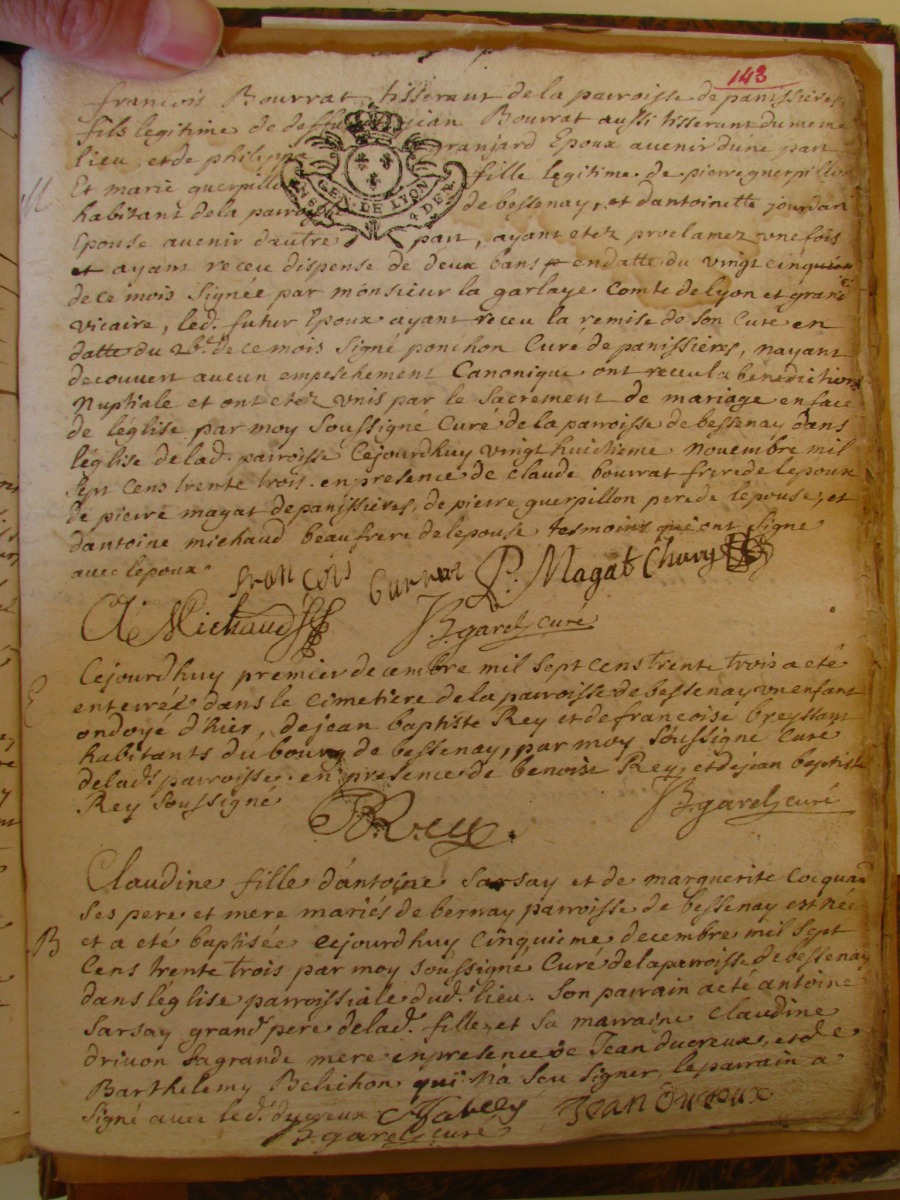 143
francois Bourrat, tisserant de la parroisse de panissieres
fils legitime de deffunt jean Bourrat aussi tisserant du meme
lieu, et de philippe granjard Epoux avenir d'une part
M
Et marie guerpillon fille legitime de pierre guerpillon
habitant de la parroisse de bessenay, et d'antoinette jourdan
GEN. DE LYON
4 DEN.
Epouse avenir d'autre part, ayant etez proclamez une fois
et ayant receu dispense de deux bans en datte du vingt cinquieme
de ce mois signée par monsieur la garlaye Comte de lyon et grand
vicaire, led. futur Epoux ayant receu la remise de son Curé en
datte du 26e. de ce mois signé ponchon Curé de panissieres, n'ayant
decouvert aucun empeschement Canonique ont receu la benediction
Nuptiale et ont etez unis par le Sacrement de mariage en face
de léglise par moy soussigné Curé de la parroisse de bessenay dans
léglise de lad. parroisse Cejourdhuy vingt huitieme novembre mil
Sept cens trente trois. en presence de claude bourrat frere de lepoux
de pierre magat de panissieres, de pierre guerpillon pere de lepouse, et
dantoine michaud beaufrere de lepouse tesmoins qui ont signe
avec lepoux. francois burrat P. Magat Chavy
A Michaud JB garel curé
E
Cejourdhuy premier decembre mil sept cens trente trois a eté
enterréz dans le cimetiere de la parroisse de bessenay un enfant
ondoyé d'hier, de jean baptiste Rey et de francoise breyssant
habitants du bourg de bessenay, par moy soussigné Curé
de lad. parroisse. en presence de benoist Rey, et de jean baptiste
Rey soussigné JB garel curé
Rey.
Claudine fille d'antoine Sarsay et de marguerite Cocquard
ses pere et mere mariés de bernay parroisse de bessenay est née
B
et a eté baptisée cejourdhuy cinquieme decembre mil sept
Cens trente trois par moy soussigné Curé de la parroisse de bessenay
dans léglise parroissiale dud. lieu. Son parrain a eté antoine
Sarsay grand pere de lad. fille, et sa marraine Claudine
drivon sa grande mere en presence de Jean ducreux, et de
Barthelemy Belichon qui n'a sceu signer, le parrain a
signé avec led. ducreux Jean Ducreux
JB garel curé